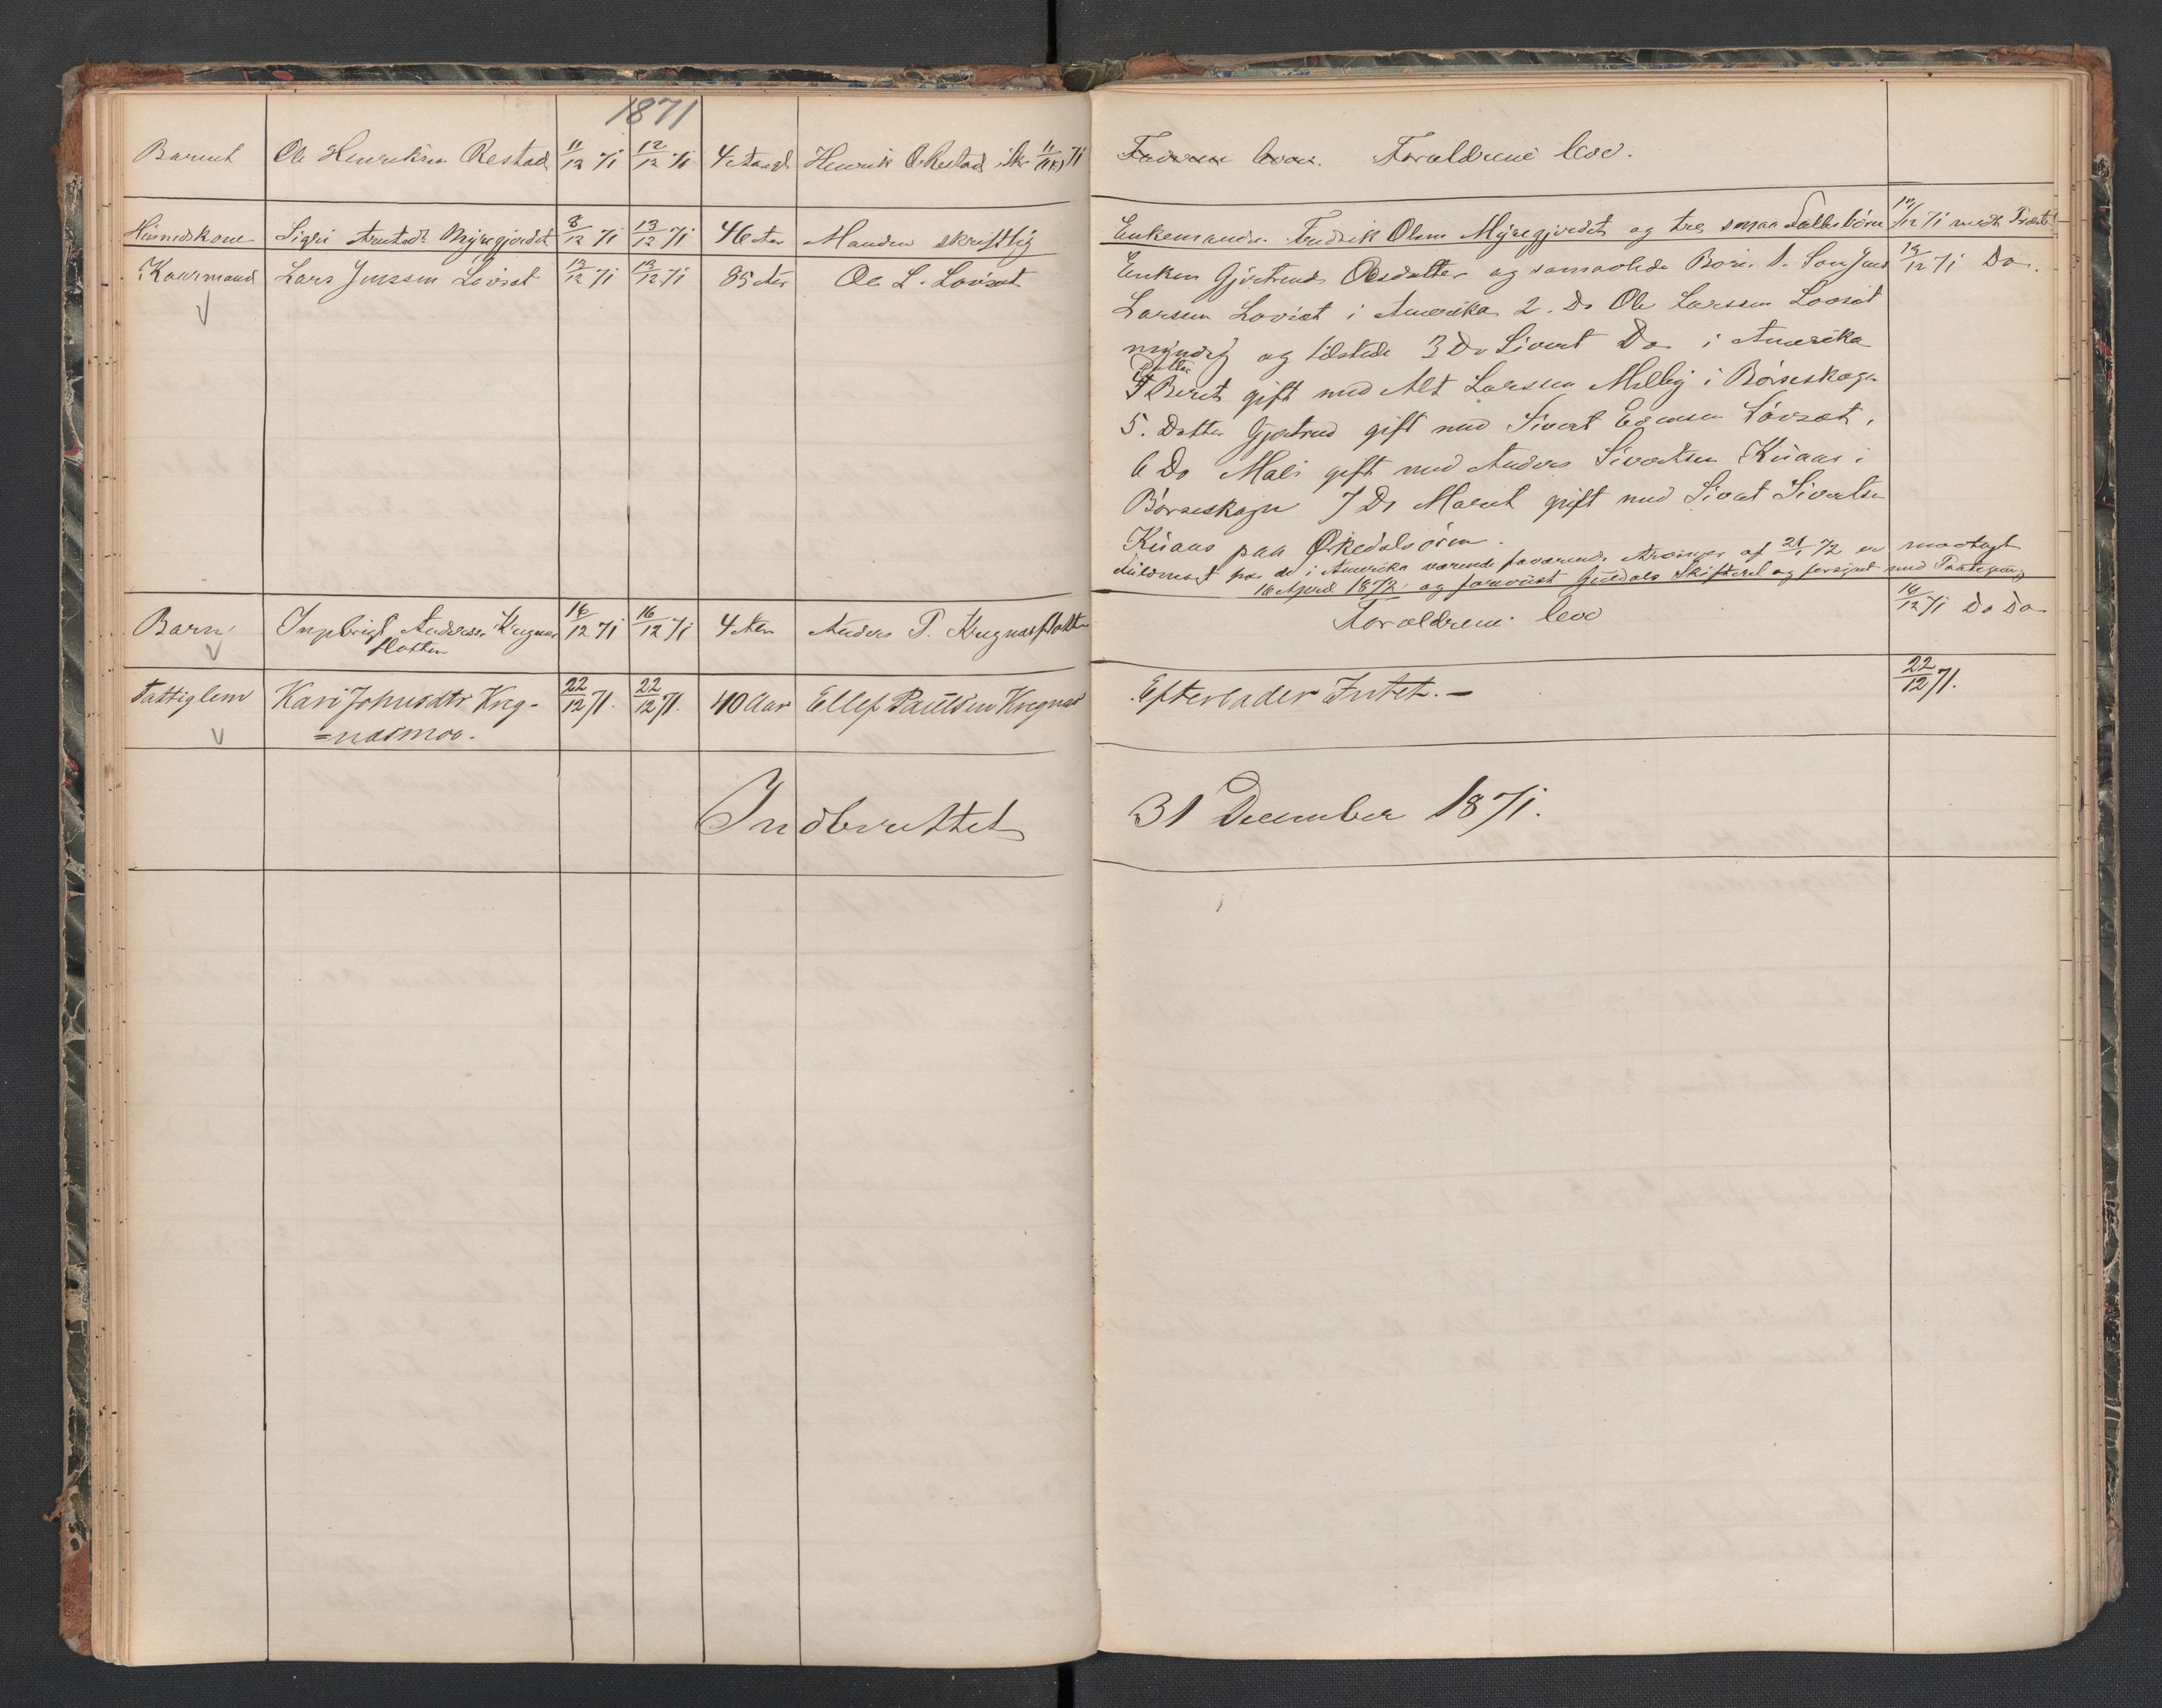 1871
Barnet Ole Henriksen Restad 11/12 71 12/12 71 Henrik O Restad 11/12 71 Forældrene leve.
Huusmedskone Sigri Arntsdt Myregjerdet 8/12 71 13/12 71 46 Aar Manden skriftlig Enkemanden Fredrik Olsen Myregjerdet og tre smaa Fællesbörn 13/12 71 med Præsten
Kaarmand Lars Jenssen Lövset 13/12 71 13/12 71 85 Aar Ole L. Lövset Enken Gjertrud Olsdatter og samavlede Börn 1. Sön Jens 13/12 71 Do.
Larssen Lövset i Amerika 2. Do Ole Larssen Lövset
myndig og tilstede 3 Do Sivert Do i Amerika
Datter
4 Berit gift med Alt Larssen Melby i Börseskogn
5. Datter Gjertrud gift med Sivert Lövset,
6 Do Mali gift med Anders Sivertsen Kuaas i
Börseskogn 7 Do Marit gift med Sivert Sivertsen
Kuaas paa Örkedalsören.
fra de i Amerika værende fraværende Arvinger af 21/1 72 er modtagt
16 April 1872 og foreviist Guldals Skifteret og forsynet med Paategning
Barn Ingebrigt Anderssen Kregnes 16/12 71 16/12 71 4 Aar Anders P. Kregnesflotten Forældrene leve 16/12 71 Do Do
flotten
Fattiglem Kari Johnsdtr Kreg- 22/12 71. 22/12 71. 40 Aar Ellef Paulsen Kregnes Efterlader Intet. - 22/12 71.
=nesmoe.
Indberettet 31 December 1871.